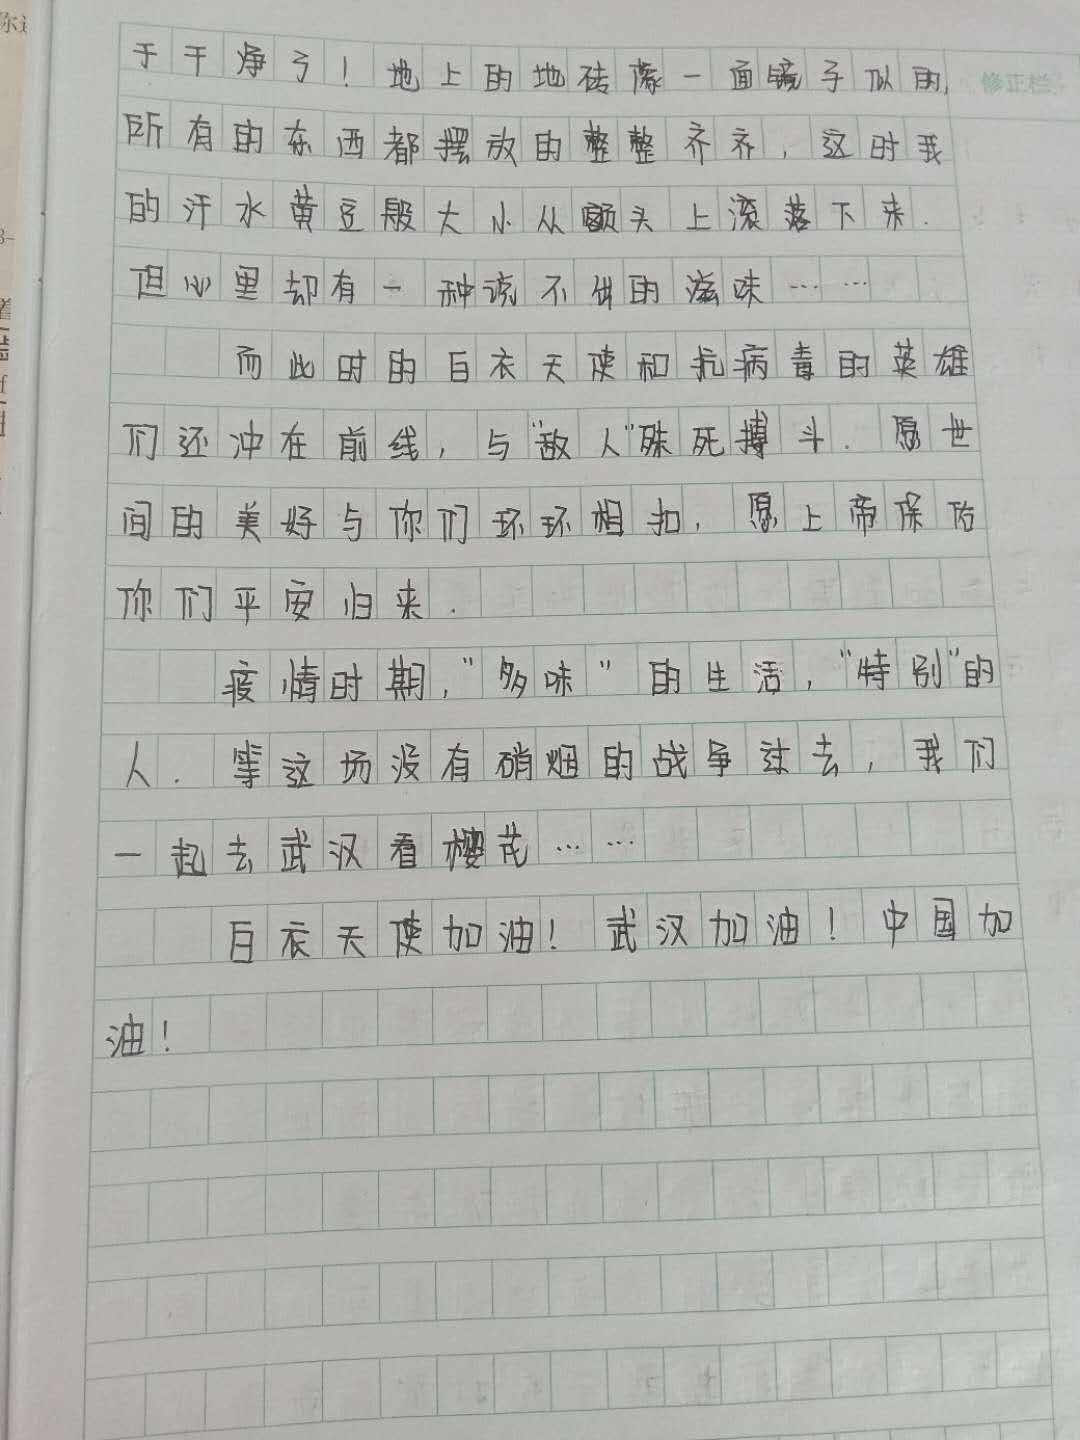 于干净了！地上的地砖像一面镜子似的，
修正栏
所有的东西都摆放的整整齐齐，这时我
的汗水黄豆般大小从额头上滚落下来.
但心里却有一种说不出的滋味……
而此时的白衣天使和抗病毒的英雄
们还冲在前线，与"敌人"殊死搏斗.愿世
间的美好与你们环环相扣，愿上帝保佑
你们平安归来.
疫情时期，"多味"的生活，"特别"的
人.等这场没有硝烟的战争过去，我们
一起去武汉看樱花……
白衣天使加油！武汉加油！中国加
油！